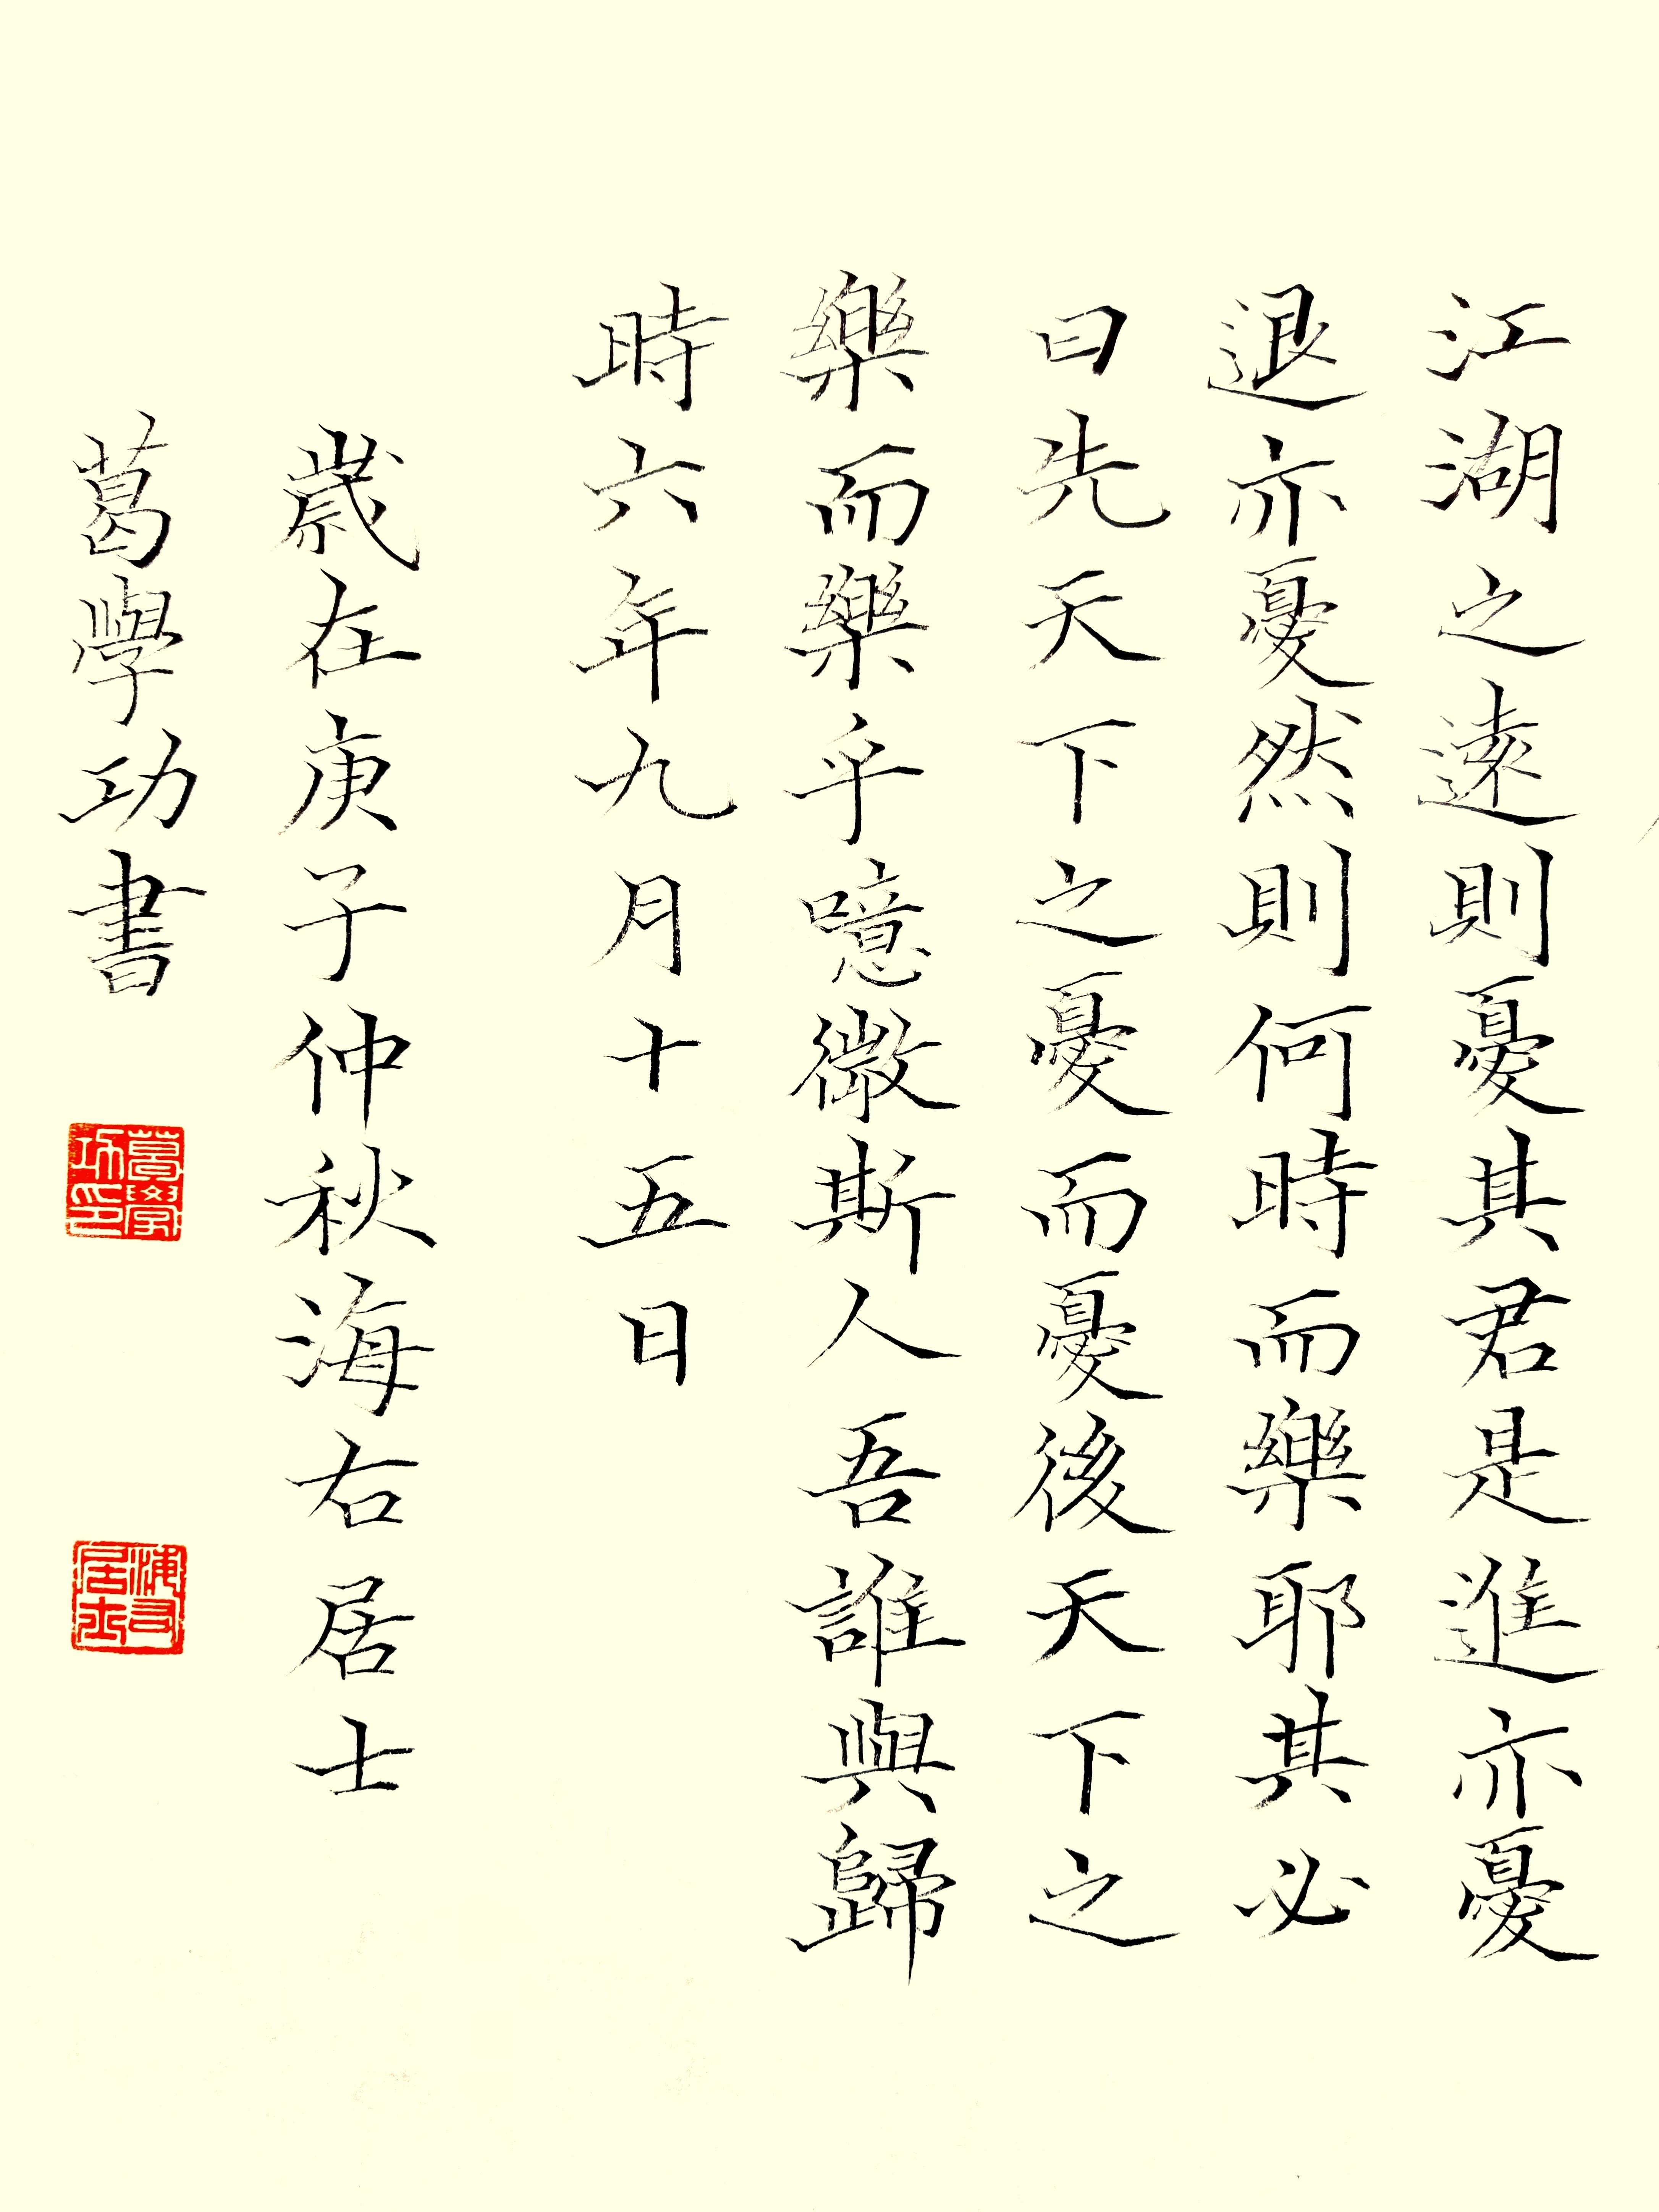 江湖之遠則憂其君是進亦憂
退亦憂然則何時而樂耶其必
曰先天下之憂而憂後天下之
樂而樂乎噫微斯人吾誰與歸
時六年九月十五日
歲在庚子仲秋海右居士
葛學功書
葛學功印
海右居士